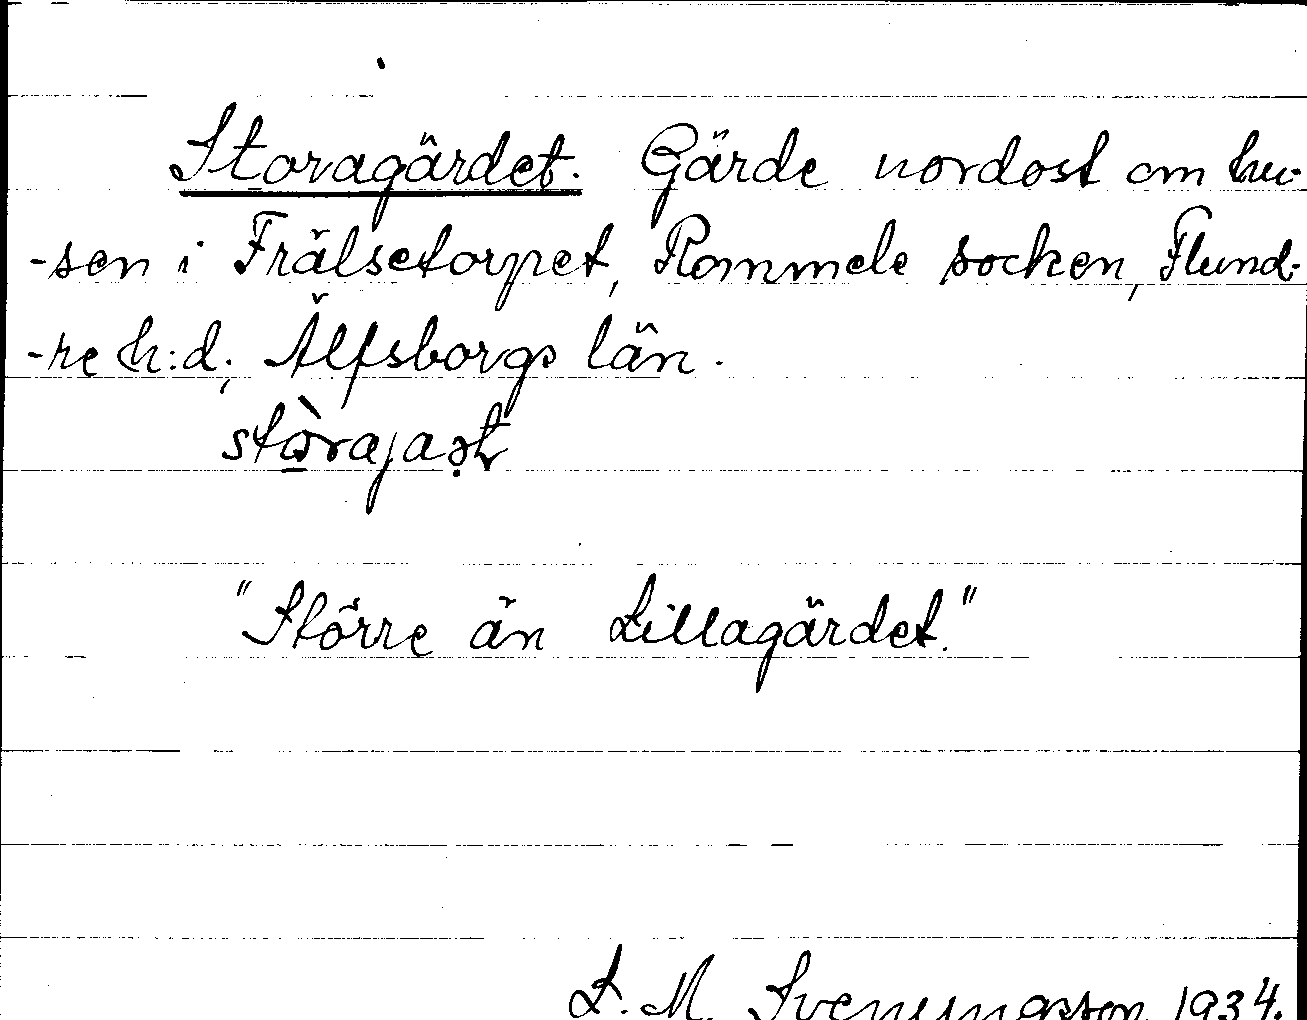 Storagärdet. Gärde nordost om hu-
-sen i Frälsetorpet, Rommele socken, Flund-
-re h:d, Älfsborgs län.
"Större än Lillagärdet."
L. M. Svenungsson 1934.